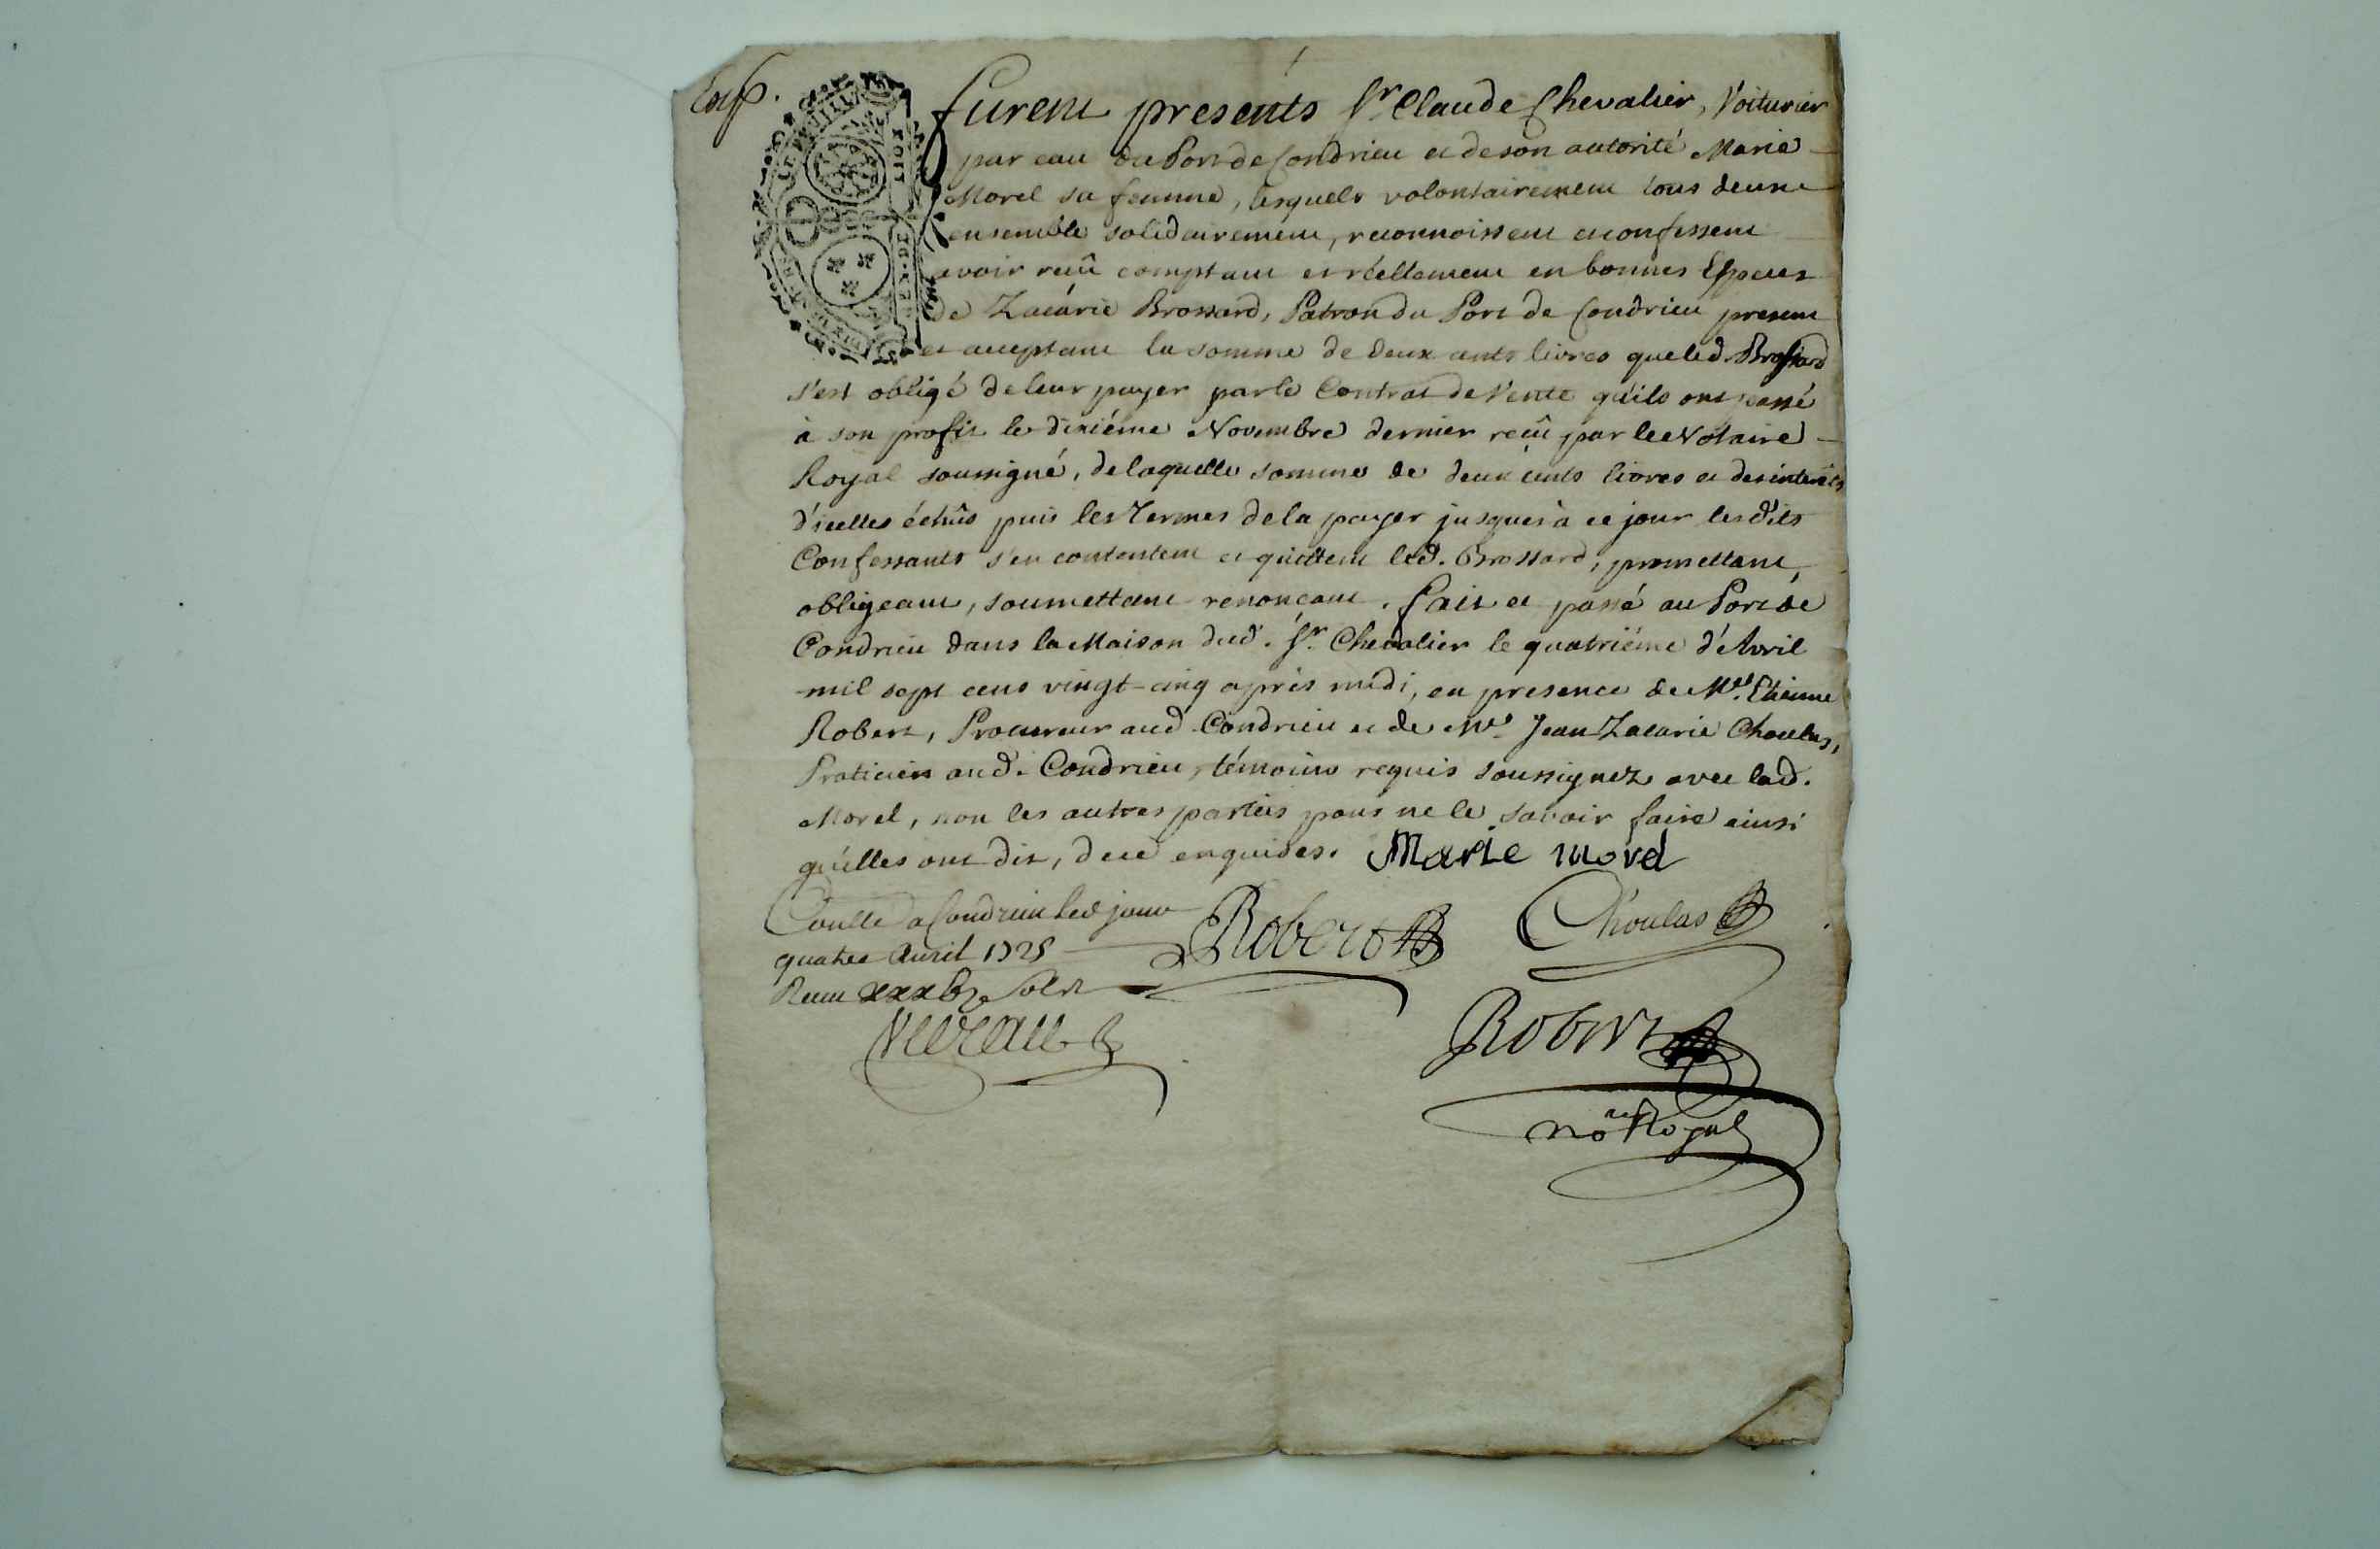 Exp.
furent presents Sr. Claude Chevalier, Voiturier
par eau du Port de Condrieu et de son autorité Marie
Morel sa femme, lesquels volontairement tous deux
ensemble solidairement, reconnoissent et confessent
avoir reçû comptant et réellement en bonnes Especes
de Zacarie Brossard, Patron du Port de Condrieu present
et acceptant la somme de deux cents livres que led. Brossard
s'est obligé de leur payer par le Contrat de Vente qu'ils ont passé
à son profit le dixiéme Novembre dernier reçû par le Notaire
Royal soussigné, de laquelle somme de deux cents livres et des interêts
d'icelles échûs puis les Termes de la payer jusques à ce jour lesdits
Confessants s'en contentent et quittent led. Brossard, promettant,
obligeant, soumettant renonçant. fait et passé au Port de
Condrieu dans la Maison dud. Sr. Chevalier le quatriéme d'Avril
mil sept cens vingt-cinq après midi, en presence de Me. Etienne
Robert, Procureur aud. Condrieu et de Me. Jean Zacarie Choulas,
Praticien aud. Condrieu, témoins requis soussignez avec lad.
Morel, non les autres parties pour ne le savoir faire ainsi
qu'elles ont dit, de ce enquises. Marie morel
Conllé a Condrieu led jour
quatre Avril 1725
Receu Sols
Robert
Choulas
Robert
nore Royal